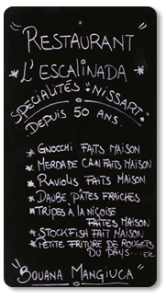 RESTAURANT
"L'ESCALINADA"
SPÉCIALITÉS "NISSART"
DEPUIS 50 ANS...
* GNOCCHI FAITS MAISON
* MERDA DE CAN FAITS MAISON
* RAVIOLIS FAITS MAISON
* DAUBE PÂTES FRAICHES
* TRIPES A LA NIÇOISE
FAITES MAISON
* STOCKFISH FAIT MAISON
* PETITE FRITURE DE ROUGETS
DU PAYS...
"BOUANA MANGIUCA"